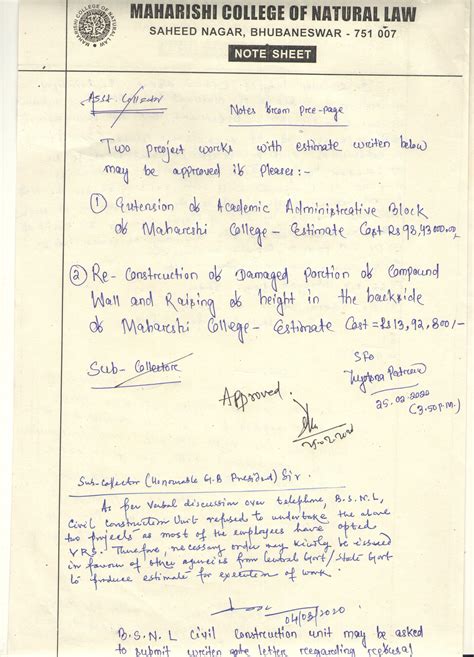 MAHARISHI COLLEGE OF NATURAL LAW
SAHEED NAGAR, BHUBANESWAR - 751 007
NOTE SHEET
Asst. Collector
Notes from pre-page
Two project works with estimate writen below
may be approved if Pleases:-
① Extension of Academic Administrative Block
of Maharshi College - Estimate Cost Rs 98,43000.00,
② Re-Construction of Damaged Portion of Compound
Wall and Raising of height in the backside
of Maharshi College - Estimate Cost = Rs 13,92,800/-
Sub-Collector
SFO
25.02.2020
(3.50 P.M.)
Approved.
25.02.2020
Sub-collector (Honourable G.B President) Sir.
As per verbal discussion over telephone, B.S.N.L,
Civil Construction Unit refused to undertake the above
two projects as most of the employees have opted
VRS. Therefore, necessary order may kindly be issued
in favour of other agencies from Central Govt/State Govt
to produce estimate for execution of work.
04/03/2020
B.S.N.L Civil Construction unit may be asked
to submit writen letter regarding refusal